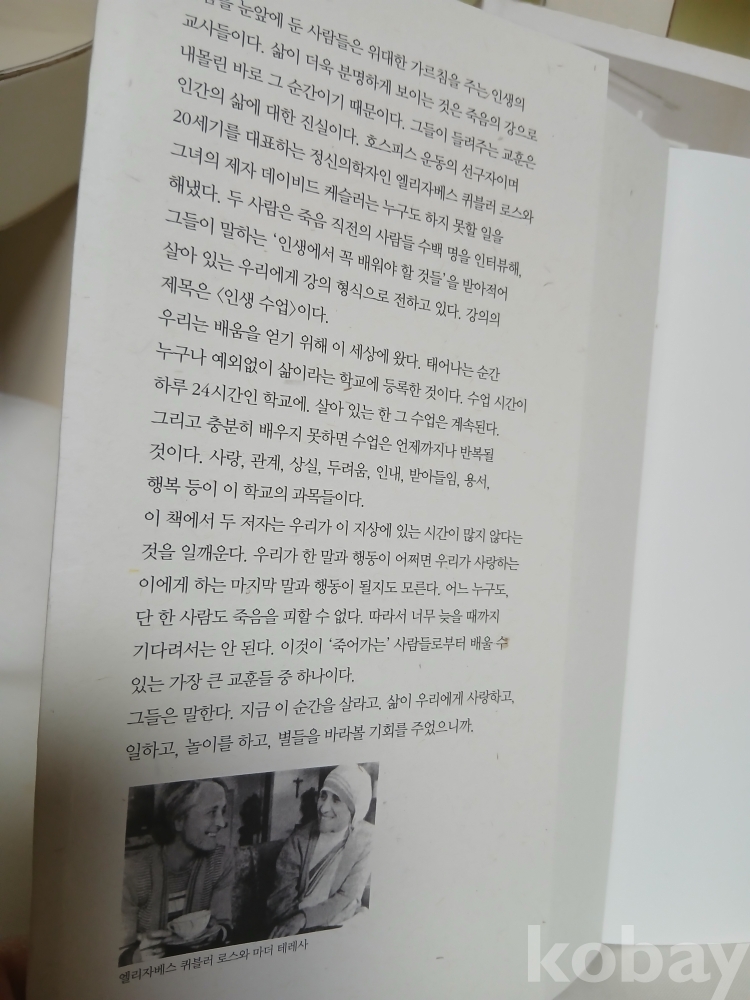 눈앞에 둔 사람들은 위대한 가르침을 주는 인생의
교사들이다. 삶이 더욱 분명하게 보이는 것은 죽음의 강으로
내몰린 바로 그 순간이기 때문이다. 그들이 들려주는 교훈은
인간의 삶에 대한 진실이다. 호스피스 운동의 선구자이며
20세기를 대표하는 정신의학자인 엘리자베스 퀴블러 로스와
그녀의 제자 데이비드 케슬러는 누구도 하지 못할 일을
해냈다. 두 사람은 죽음 직전의 사람들 수백 명을 인터뷰해,
그들이 말하는 ‘인생에서 꼭 배워야 할 것들’을 받아적어
살아 있는 우리에게 강의 형식으로 전하고 있다. 강의의
제목은 〈인생 수업〉이다.
우리는 배움을 얻기 위해 이 세상에 왔다. 태어나는 순간
누구나 예외없이 삶이라는 학교에 등록한 것이다. 수업 시간이
하루 24시간인 학교에. 살아 있는 한 그 수업은 계속된다.
그리고 충분히 배우지 못하면 수업은 언제까지나 반복될
것이다. 사랑, 관계, 상실, 두려움, 인내, 받아들임, 용서,
행복 등이 이 학교의 과목들이다.
이 책에서 두 저자는 우리가 이 지상에 있는 시간이 많지 않다는
것을 일깨운다. 우리가 한 말과 행동이 어쩌면 우리가 사랑하는
이에게 하는 마지막 말과 행동이 될지도 모른다. 어느 누구도,
단 한 사람도 죽음을 피할 수 없다. 따라서 너무 늦을 때까지
기다려서는 안 된다. 이것이 ‘죽어가는’ 사람들로부터 배울 수
있는 가장 큰 교훈들 중 하나이다.
그들은 말한다. 지금 이 순간을 살라고. 삶이 우리에게 사랑하고,
일하고, 놀이를 하고, 별들을 바라볼 기회를 주었으니까.
엘리자베스 퀴블러 로스와 마더 테레사
kobay